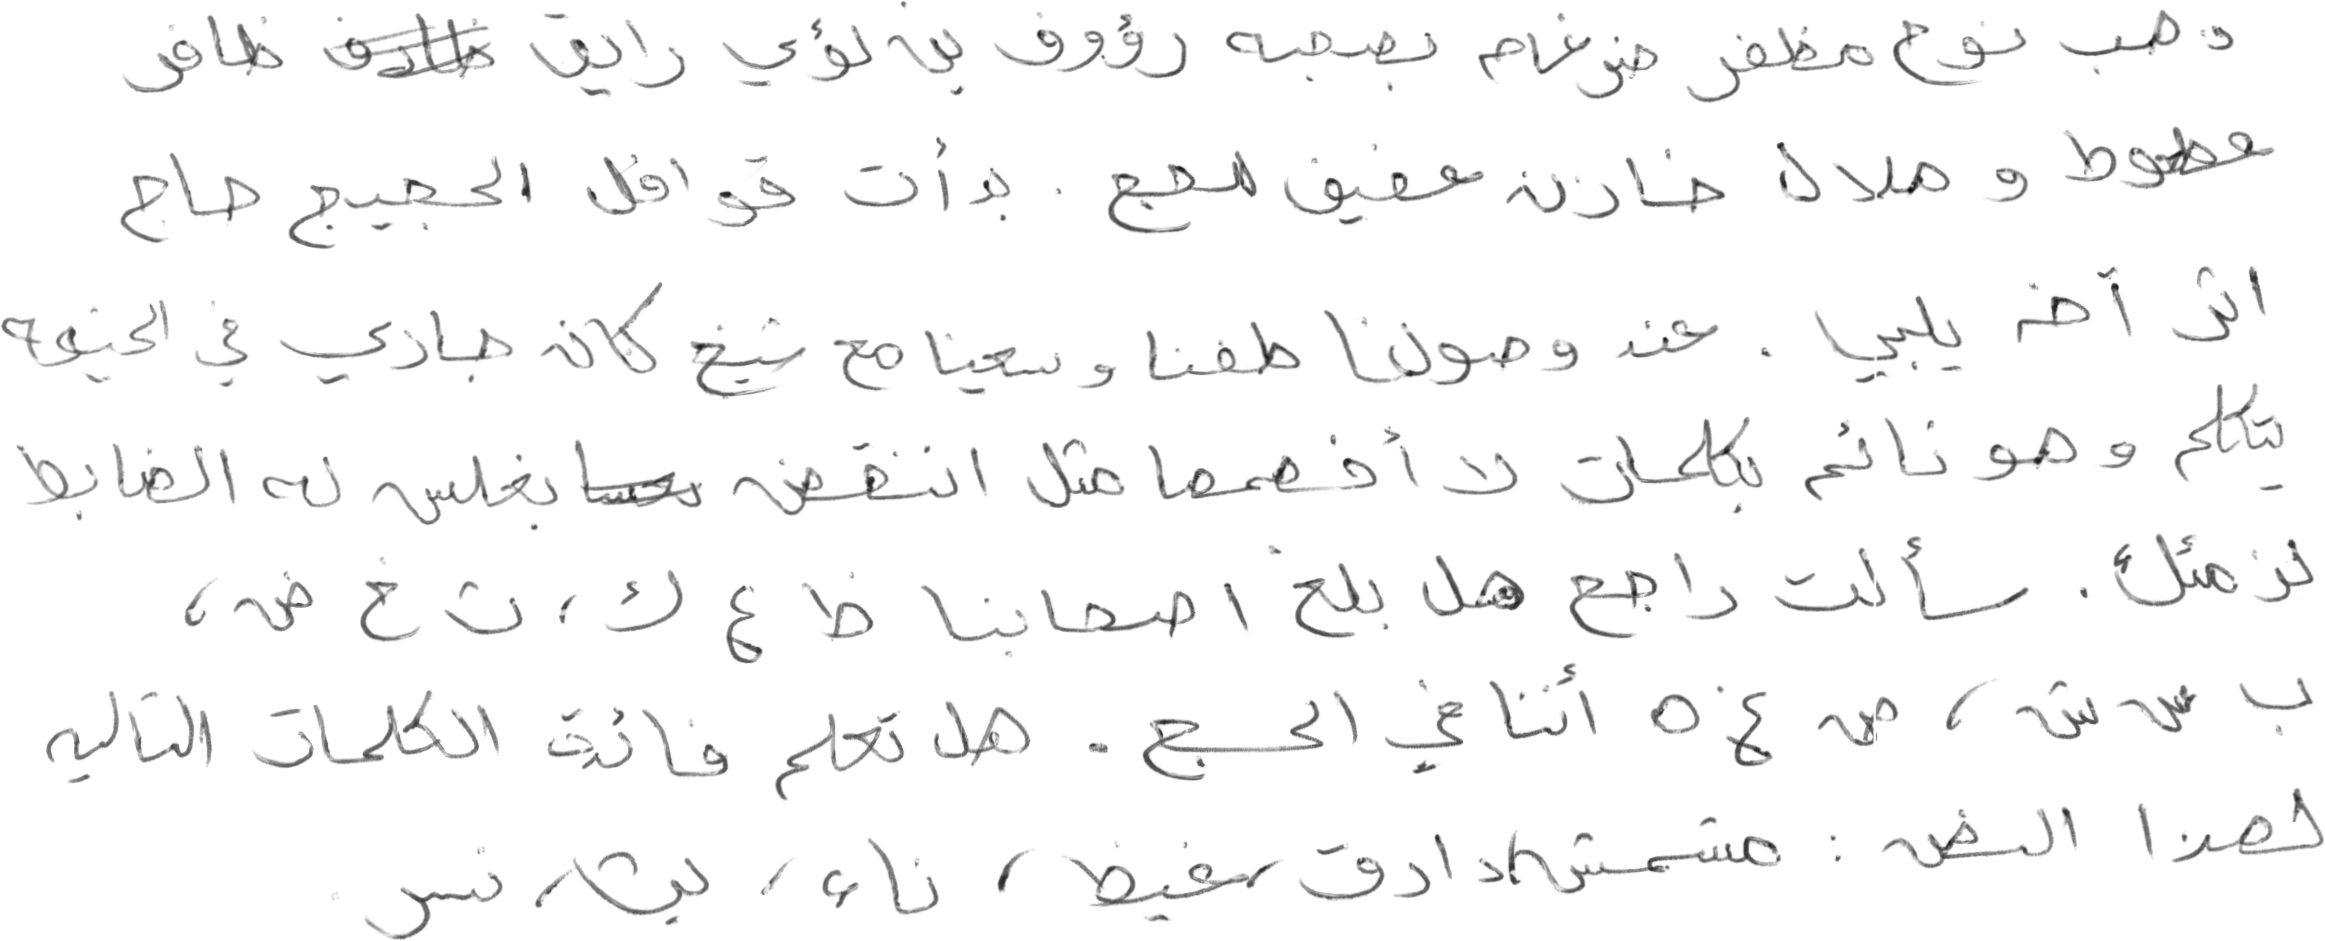 ذهب نوح مظفر ضرغام بصحبه رؤوف بن لؤي رايق ظافر
عطوط و هلال خازن عفيف للحج . بدأت قوافل الحجيج حاج
اثر آخر يلبي . عند وصولنا طفنا وسعينا مع شيخ كان جاري في الخيمه
يتكلم وهو نائم بكلمات لا أفهمها مثل انتقض بغلس له الضابط
لزمئك . سألت راجع هل بلغ اصحابنا ظ ع ك ، ث خ ض ،
ب س ش ، ص غ ه أثنا في الحج . هل تعلم فائدة الكلمات التاليه
لهذا النص : مشمش ، دادق ، غيظ ، ناء ، ليث ، نس .